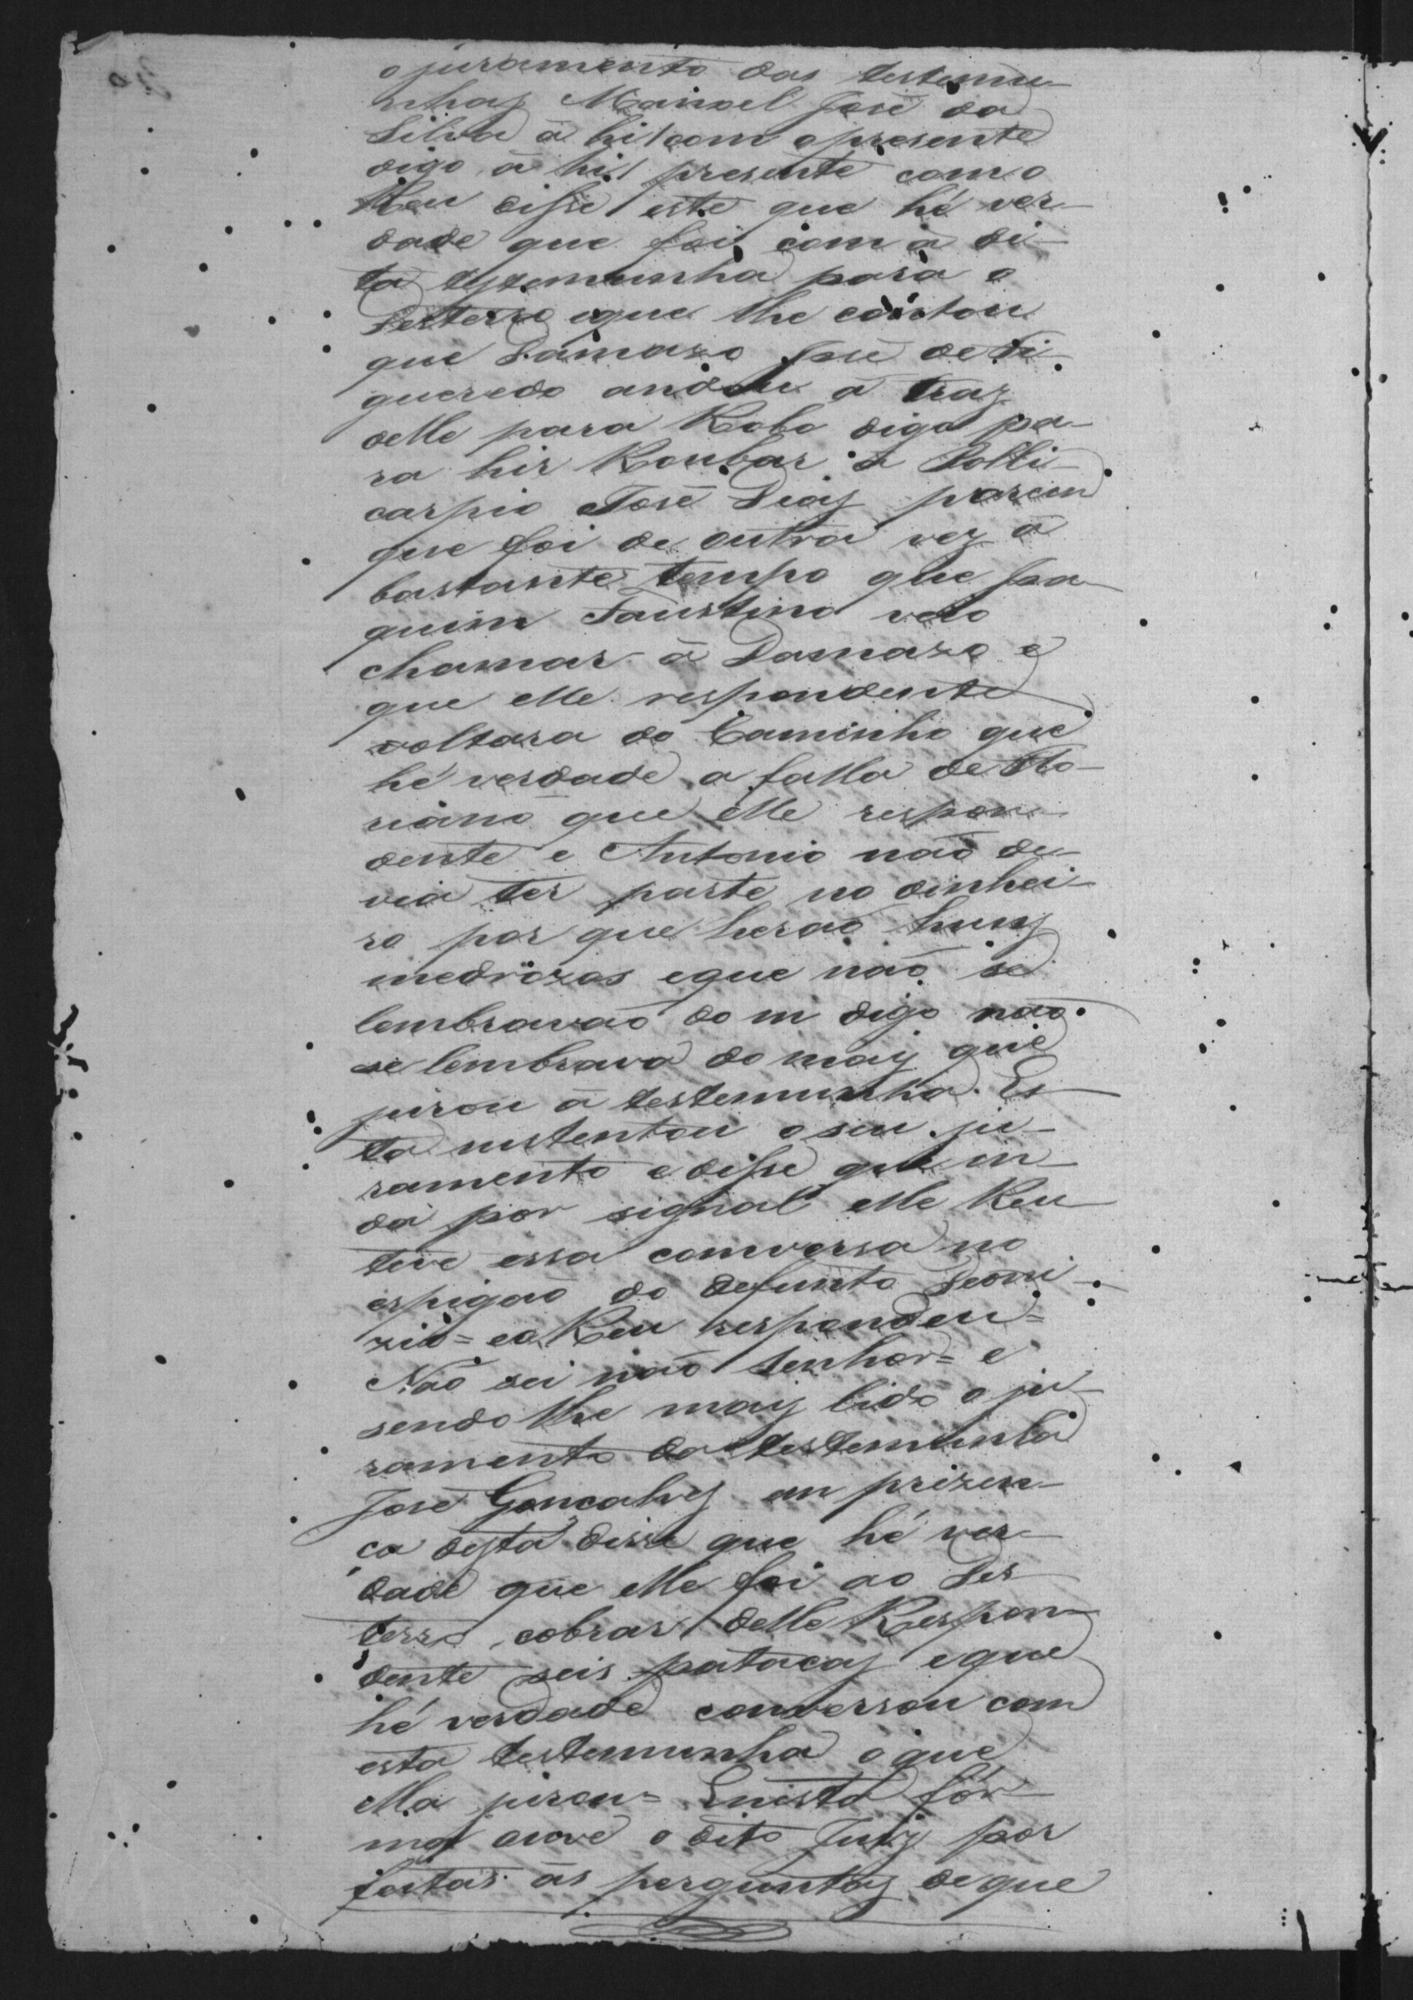 o juramento das testemu-
nhas Manoel José da
Silva á hi com o presente
digo á hi presente com o
Reu disse este que hé ver-
dade que foi com a di-
ta testemunha para o
Desterro e que lhe contou
que Damazo José de Fi-
gueredo andou a traz
delle para Robo digo pa-
ra hir Roubar a Polli-
carpio José Dias porem
que foi de outra vez á
bastante tempo que Joa-
quim Faustino veio
chamar á Damazo e
que elle respondente
voltara do Caminho que
hé verdade a falla de Flo-
riano que elle respon-
dente e Antonio não de-
via ter parte no dinhei-
ro por que herão huns
medrozos e que não se
lembravão do m digo não
se lembrava do mais que
jurou á testemunha. Es-
ta sustentou o seu ju-
ramento e disse que in-
da por signal elle Reu
teve essa comversa no
espigão do defunto Deoni-
zio = e o Reu respondeu =
Não sei não Senhor = e
sendo lhe mais lido o ju-
ramento da testemunha
José Goncalves em prizen-
ca desta disse que hé ver-
dade que elle foi ao Des-
terro cobrar delle Respon-
dente seis patacas e que
hé verdade conversou com
esta testemunha o que
ella jurou = E nesta fór-
ma ouve o dito Juiz por
feitas as perguntas de que